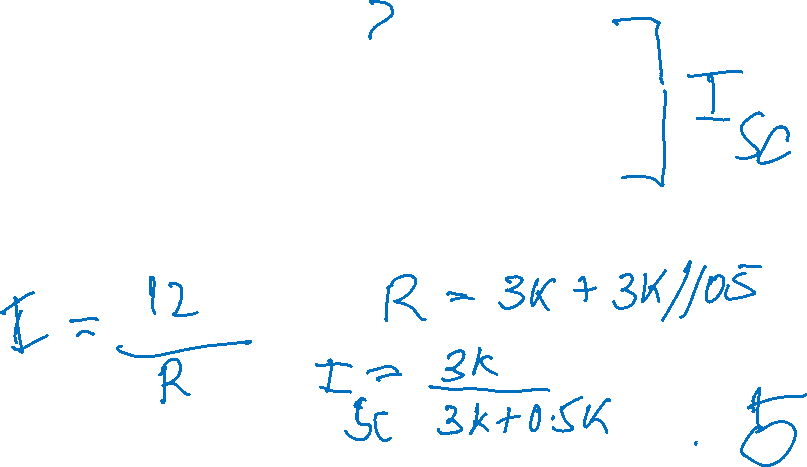 I_SC
I = 12/R
R = 3K + 3K//05
I_SC = 3K/(3K+0.5K) .